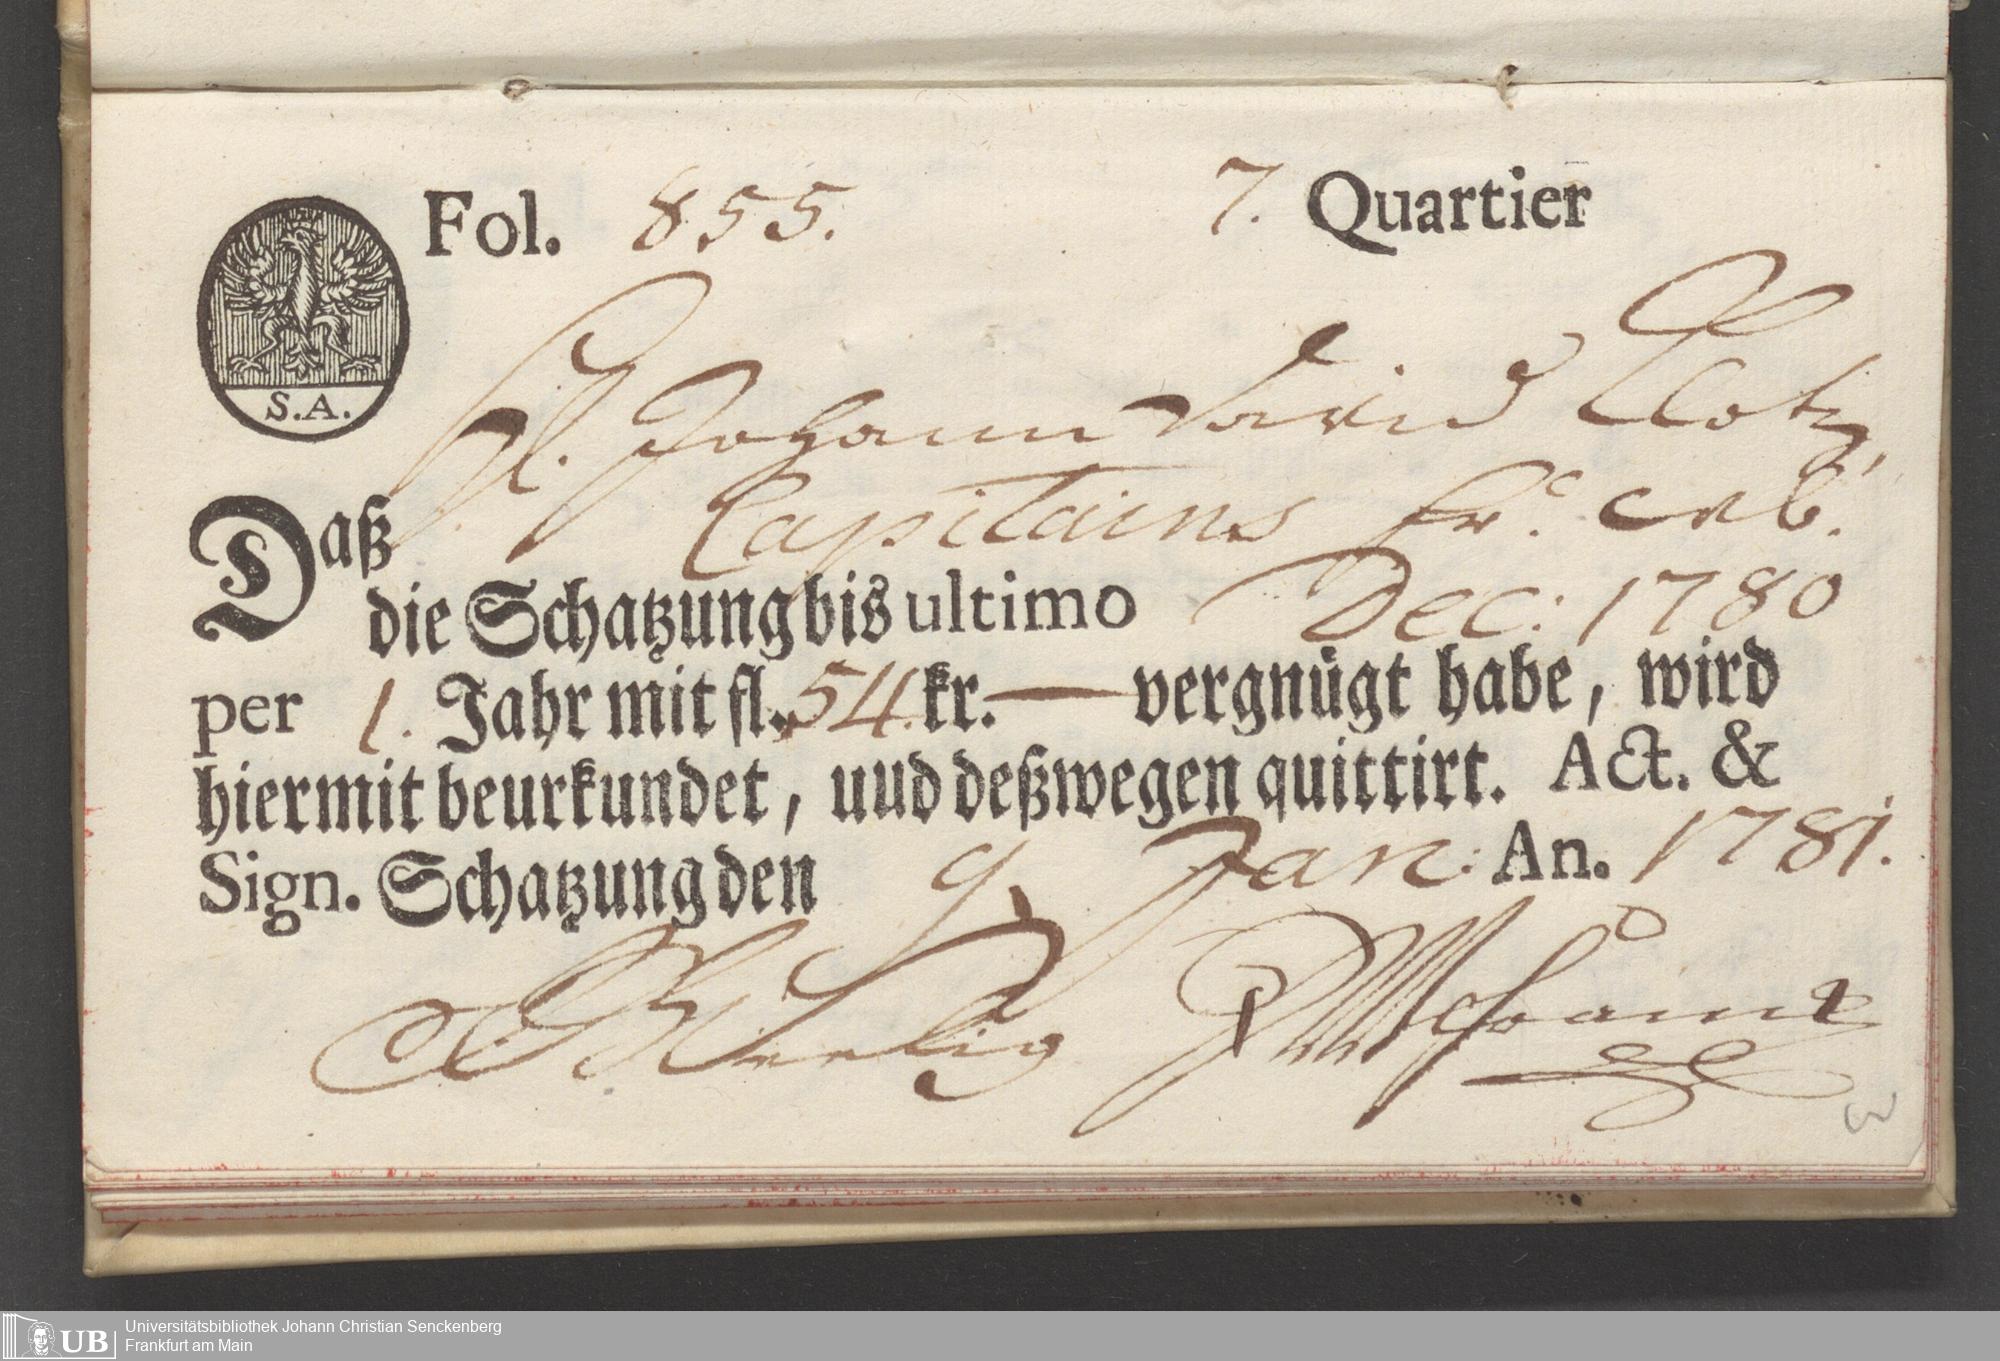 Fol. 855. 7. Quartier
S.A.
Hl. Johann David Clotz,
Daß Capitains Fr. Erb.
die Schatzung bis ultimo Dec: 1780
per 1. Jahr mit fl. 54. kr. — vergnügt habe, wird
hiermit beurkundet, uud deßwegen quittirt. Act. &
Sign. Schatzung den 9. Jan: An. 1781.
UB
Universitätsbibliothek Johann Christian Senckenberg
Frankfurt am Main